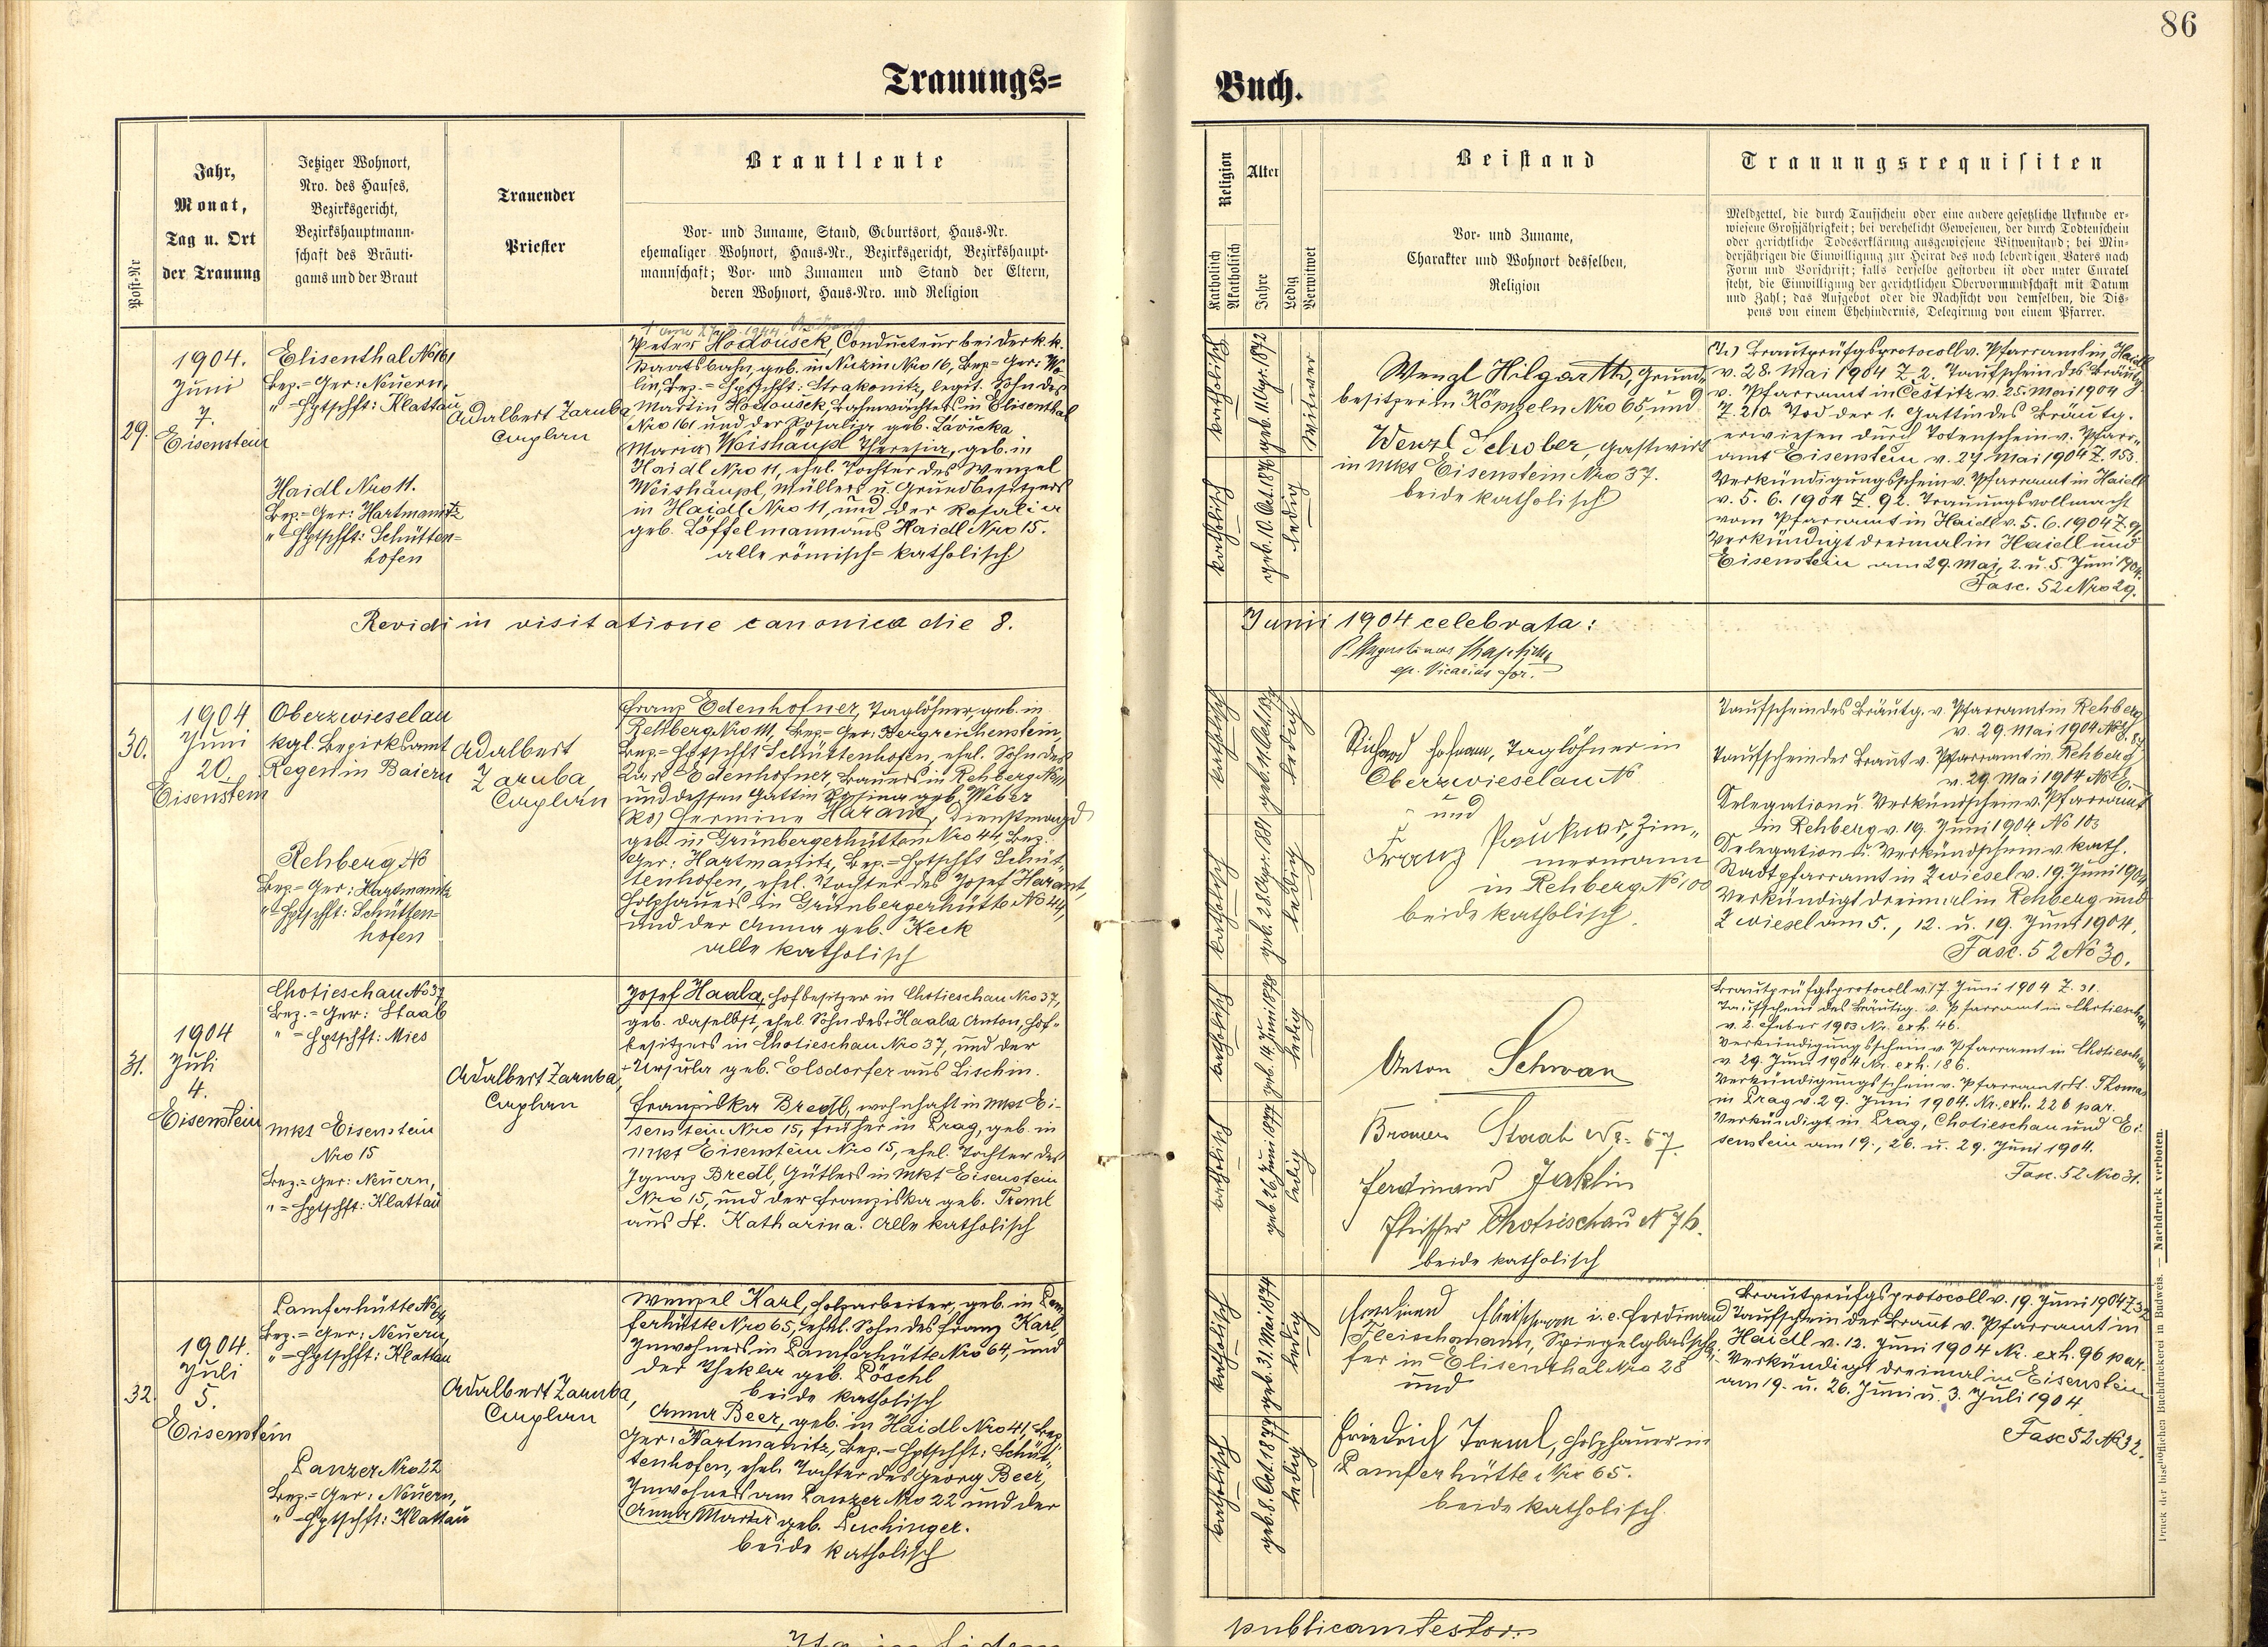 86
Trauungs=
Buch.
Post-Nr
Jahr,
Monat,
Tag u. Ort
der Trauung
Jetziger Wohnort,
Nro. des Hauses,
Bezirksgericht,
Bezirkshauptmann-
schaft des Bräuti-
gams und der Braut
Trauender
Priester
Brautleute
Vor- und Zuname, Stand, Geburtsort, Haus-Nr.
ehemaliger Wohnort, Haus-Nr., Bezirksgericht, Bezirkshaupt-
mannschaft; Vor- und Zunamen und Stand der Eltern,
deren Wohnort, Haus-Nro. und Religion
Religion
Katholisch
Akatholisch
Alter
Jahre
Ledig
Verwitwet
Beistand
Vor- und Zuname,
Charakter und Wohnort desselben,
Religion
Trauungsrequisiten
Meldzettel, die durch Taufschein oder eine andere gesetzliche Urkunde er-
wiesene Großjährigkeit; bei verehelicht Gewesenen, der durch Todtenschein
oder gerichtliche Todeserklärung ausgewiesene Witwenstand; bei Min-
derjährigen die Einwilligung zur Heirat des noch lebendigen Vaters nach
Form und Vorschrift; falls derselbe gestorben ist oder unter Curatel
steht, die Einwilligung der gerichtlichen Obervormundschaft mit Datum
und Zahl; das Aufgebot oder die Nachsicht von demselben, die Dis-
pens von einem Ehehindernis, Delegirung von einem Pfarrer.
29.
1904.
Juni
7.
Eisenstein
Elisenthal No 161
Bez.= Ger: Neuern,
" =Hptschft: Klattau
Haidl Nro 11.
Bez.= Ger: Hartmanitz
" =Hptschft: Schütten=
hofen
Adalbert Zaruba,
Caplan
Peter Hodousek, Conducteur bei der k.k.
Staatsbahn, geb. in Nro 16, Bez= Ger: Wo-
lin, Bez.= Hptschft: Strakonitz, legit. Sohn des
Martin Hodousek, Bahnwächters in Elisenthal
Nro 161 und der Rosalia geb. Lavicka
(Maria) Weishäupl Theresia, geb. in
Haidl Nro 11, ehel. Tochter des Wenzel
Weishäupl, Müllers u. Grundbesitzers
in Haidl Nro 11, und der Rosalia
geb. Löffelmann aus Haidl Nro 15.
alle römisch=katholisch
katholisch
geb. 1872
Witwer
katholisch
geb. 10. Oct. 1876
ledig
Wenzl Hilgarth, Grund-
besitzer in Köppeln Nro 65, und
Wenzl Schober, Gastwirt
in Mkt Eisenstein Nro 37.
beide katholisch
Brautprüfgsprotocoll v. Pfarramt in Haidl
v. 28. Mai 1904 Z 2. Taufschein des Bräutg.
v. Pfarramt in Čestitz v. 25. Mai 1904
Z. 210. Tod der 1. Gattin des Bräutg.
erwiesen durch Totenschein v. Pfarr-
amt Eisenstein v. 27 Mai 1904 Z. 153.
Verkündigungsschein v. Pfarramt in Haidl
v. 5. 6. 1904 Z. 92. Trauungsvollmacht
vom Pfarramt in Haidl v. 5. 6. 1904 Z. 9
Verkündigt dreimal in Haidl und
Eisenstein am 29. Mai, 2. u. 5. Juni 1904.
Fasc. 52 Nro 29.
Revidi in visitatione canonica die 8.
Junii 1904 celebrata:
P. Augustinus
ep. Vicarius for.
30.
1904
Juni
20.
Eisenstein
Oberzwieselau
kgl. Bezirksamt
Regen in Baiern
Rehberg No
Bez.= Ger: Hartmanitz
" =Hptschft: Schütten=
hofen
Adalbert
Zaruba,
Caplan
Franz Edenhofner, Taglöhner, geb. in
Rehberg Nro 111, Bez= Ger: Bergreichenstein,
Bez.= Hptschft Schüttenhofen, ehel. Sohn des
Karl Edenhofner, Bauers in Rehberg No 111
und dessen Gattin Rosina geb. Weber
Hermine Harant, Dienstmagd
geb. in Grünbergerhütten Nro 44, Bez.
Ger: Hartmanitz, Bez.= Hptschft Schüt-
tenhofen, ehel. Tochter des Josef Harant,
Holzhauers in Grünbergerhütte No 44,
und der Anna geb. Keck
alle katholisch
katholisch
geb. 11. Oct.
ledig
katholisch
geb. 28. Apr. 1881
ledig
Hofmann, Taglöhner in
Oberzwieselau No
und
Franz Paukner, Zim-
mermann
in Rehberg No 100
beide katholisch.
Taufschein des Bräutg. v. Pfarramt in Rehberg
v. 29. Mai 1904
Taufschein der Braut v. Pfarramt in Rehberg
v. 29 Mai 1904
Delegation u. Verkündschein v. Pfarramt
in Rehberg v. 19. Juni 1904 No 103
Delegation u. Verkündschein v. kath.
Stadtpfarramt in Zwiesel v. 19. Juni 1904
Verkündigt dreimal in Rehberg und
Zwiesel am 5., 12. u. 19. Juni 1904.
Fasc. 52 No 30.
31.
1904
Juli
4.
Eisenstein
Chotieschau No 37
Bez.= Ger: Staab
" =Hptschft: Mies
Mkt Eisenstein
Nro 15
Bez.= Ger: Neuern,
" =Hptschft: Klattau
Adalbert Zaruba,
Caplan
Josef Haala, Hofbesitzer in Chotieschau Nro 37,
geb. daselbst, ehel. Sohn des Haala Anton, Hof-
besitzers in Chotieschau Nro 37, und der
Ursula geb. Elsdorfer aus Lischin.
Franziska Bredl, wohnhaft in Mkt Ei-
senstein Nro 15, früher in Prag, geb. in
Mkt Eisenstein Nro 15, ehel. Tochter des
Ignaz Bredl, Gütlers in Mkt Eisenstein
Nro 15, und der Franziska geb. Treml
aus St. Katharina. Alle katholisch
katholisch
geb. 14. Juni 1878
ledig
katholisch
geb. 26. Juni 1877
ledig
Anton Schwan
Brauer Staab No 57.
Ferdinand Jaklin
Fleischer Chotieschau N 76.
beide katholisch
Brautprüfgsprotocoll v. 17. Juni 1904 Z. 31.
Taufschein des Bräutig. v. Pfarramt in Chotieschau
v. 2. Feber 1903 Nr. exh. 46.
Verkündigungsschein v. Pfarramt in Chotieschau
v. 29. Juni 1904 Nr. exh. 186.
Verkündigungsschein v. Pfarramt St. Thomas
in Prag v. 29. Juni 1904. Nr. exh. 226 par.
Verkündigt in Prag, Chotieschau und Ei-
senstein am 19., 26. u. 29. Juni 1904.
Fasc. 52 Nro 31.
32.
1904.
Juli
5.
Eisenstein
Lamferhütte No 64
Bez.= Ger: Neuern,
" =Hptschft: Klattau
Panzer Nro 22
Bez.= Ger: Neuern,
" =Hptschft: Klattau
Adalbert Zaruba,
Caplan
Wenzel Karl, Holzarbeiter, geb. in Lam-
ferhütte Nro 65, ehel. Sohn des Franz Karl,
Inwohners in Lamferhütte Nro 64, und
der Thekla geb. Pöschl
beide katholisch
Anna Beer, geb. in Haidl Nro 41, Bez.
Ger: Hartmanitz, Bez.= Hptschft: Schüt-
tenhofen, ehel. Tochter des Georg Beer,
Inwohners am Panzer Nro 22 und der
(Anna Maria) geb. Puchinger.
beide katholisch
katholisch
geb. 31. Mai 1874
ledig
katholisch
geb. 8. Oct. 1877
ledig
i. e. Ferdinand
Fleischmann, Spiegelglasschlei-
fer in Elisenthal Nro 28
und
Friedrich Treml, Holzhauer in
Lamferhütte Nro 65.
beide katholisch.
Brautprüfgsprotocoll v. 19. Juni 1904 Z 32
Taufschein der Braut v. Pfarramt in
Haidl v. 12. Juni 1904 Nr. exh. 96 par.
Verkündigt dreimal in Eisenstein
am 19. u. 26. Juni u. 3. Juli 1904.
Fasc 52 No 32.
Druck der bischöflichen Buchdruckerei in Budweis. — Nachdruck verboten.
Ita in fidem
publicam testor: